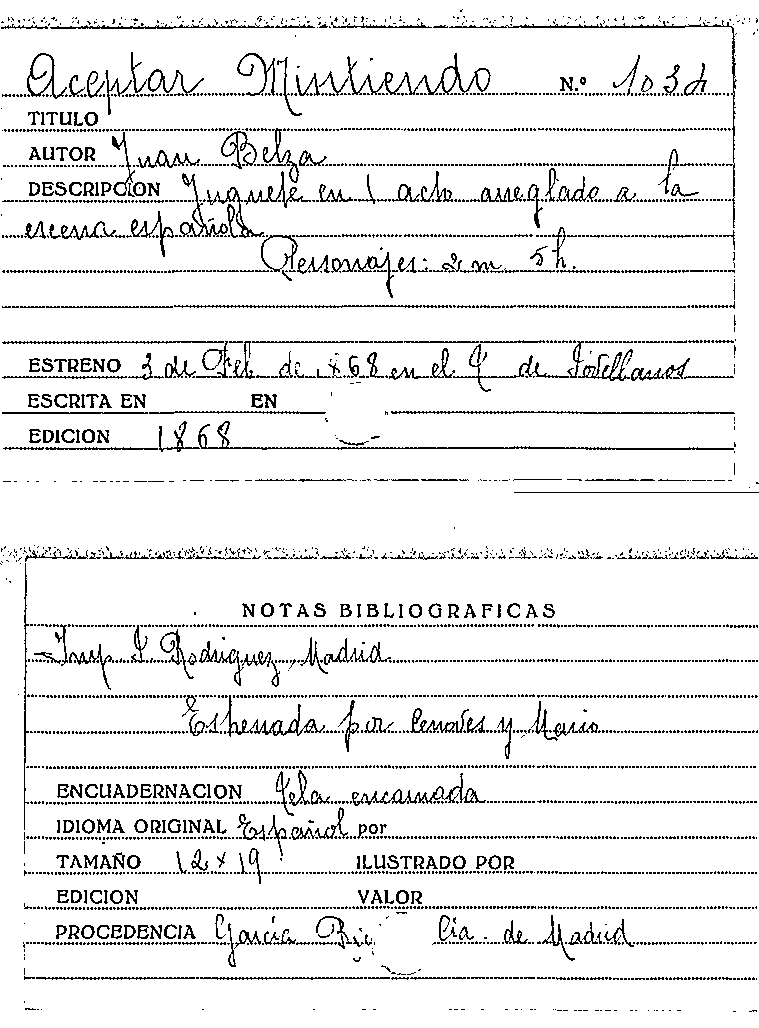 Aceptar Mintiendo N.º 1034
TITULO
AUTOR Juan Belza
DESCRIPCION Juguete en 1 acto arreglado a la
escena española
Personajes: 2 m 5 h.
ESTRENO 3 de Feb. de 1868 en el Tº de Jovellanos
ESCRITA EN EN
EDICION 1868
NOTAS BIBLIOGRAFICAS
Imp J. Rodriguez, Madrid
Estrenada por Cenoves y Mario
ENCUADERNACION Tela encarnada
IDIOMA ORIGINAL Español por
TAMAÑO 12 x 19 ILUSTRADO POR
EDICION VALOR
PROCEDENCIA García Cia. de Madrid